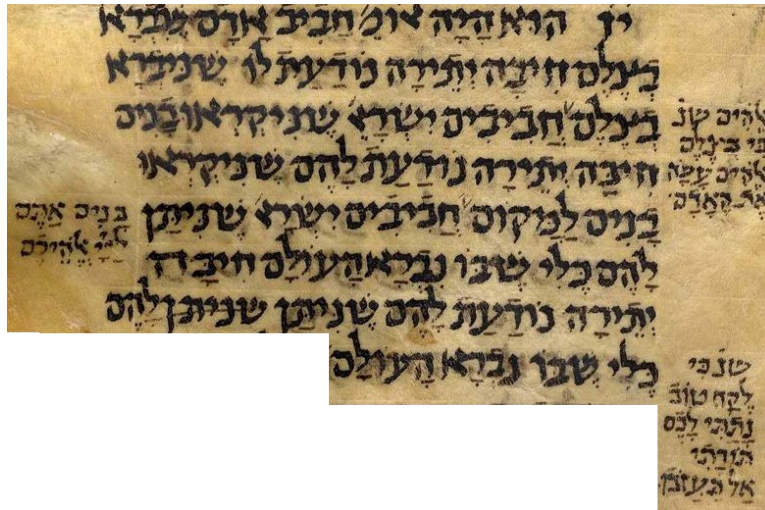 יו הוא היה אומ׳ חביב אדם שנברא
בצלם חיבה יתירה נודעת לו שניברא
בצלם חביבים ישרא׳ שניקראו בנים
חיבה יתירה נודעת להם שניקראו
בנים למקום חביבים ישרא׳ שניתן
להם כלי שבו נברא העולם חיבה
יתירה נודעת להם שניתן שניתן להם
כלי שבו נברא העולם
אלהים שנ׳
כי בצלם
אלהים עשה
את האדם
בנים אתם
לייי אלהיכם
שנ׳ כי
לקח טוב
נתתי לכם
תורתי
אל תעזובו